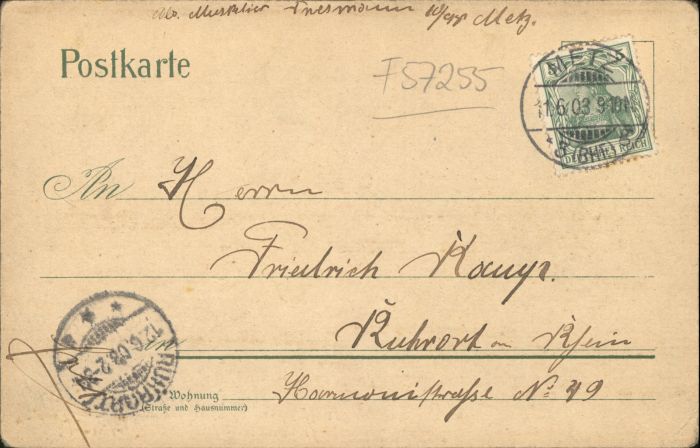 Abs. Musketier Driesmann 10/98 Metz.
Postkarte
F57255
METZ
11.6.03 9-10V
* 3 (BHF) *
DEUTSCHES REICH
An Herrn
Friedrich Kamp.
Ruhrort am Rhein
in
Wohnung Harmoniestraße No 49
(Straße und Hausnummer)
RUHRORT
12.6.03.